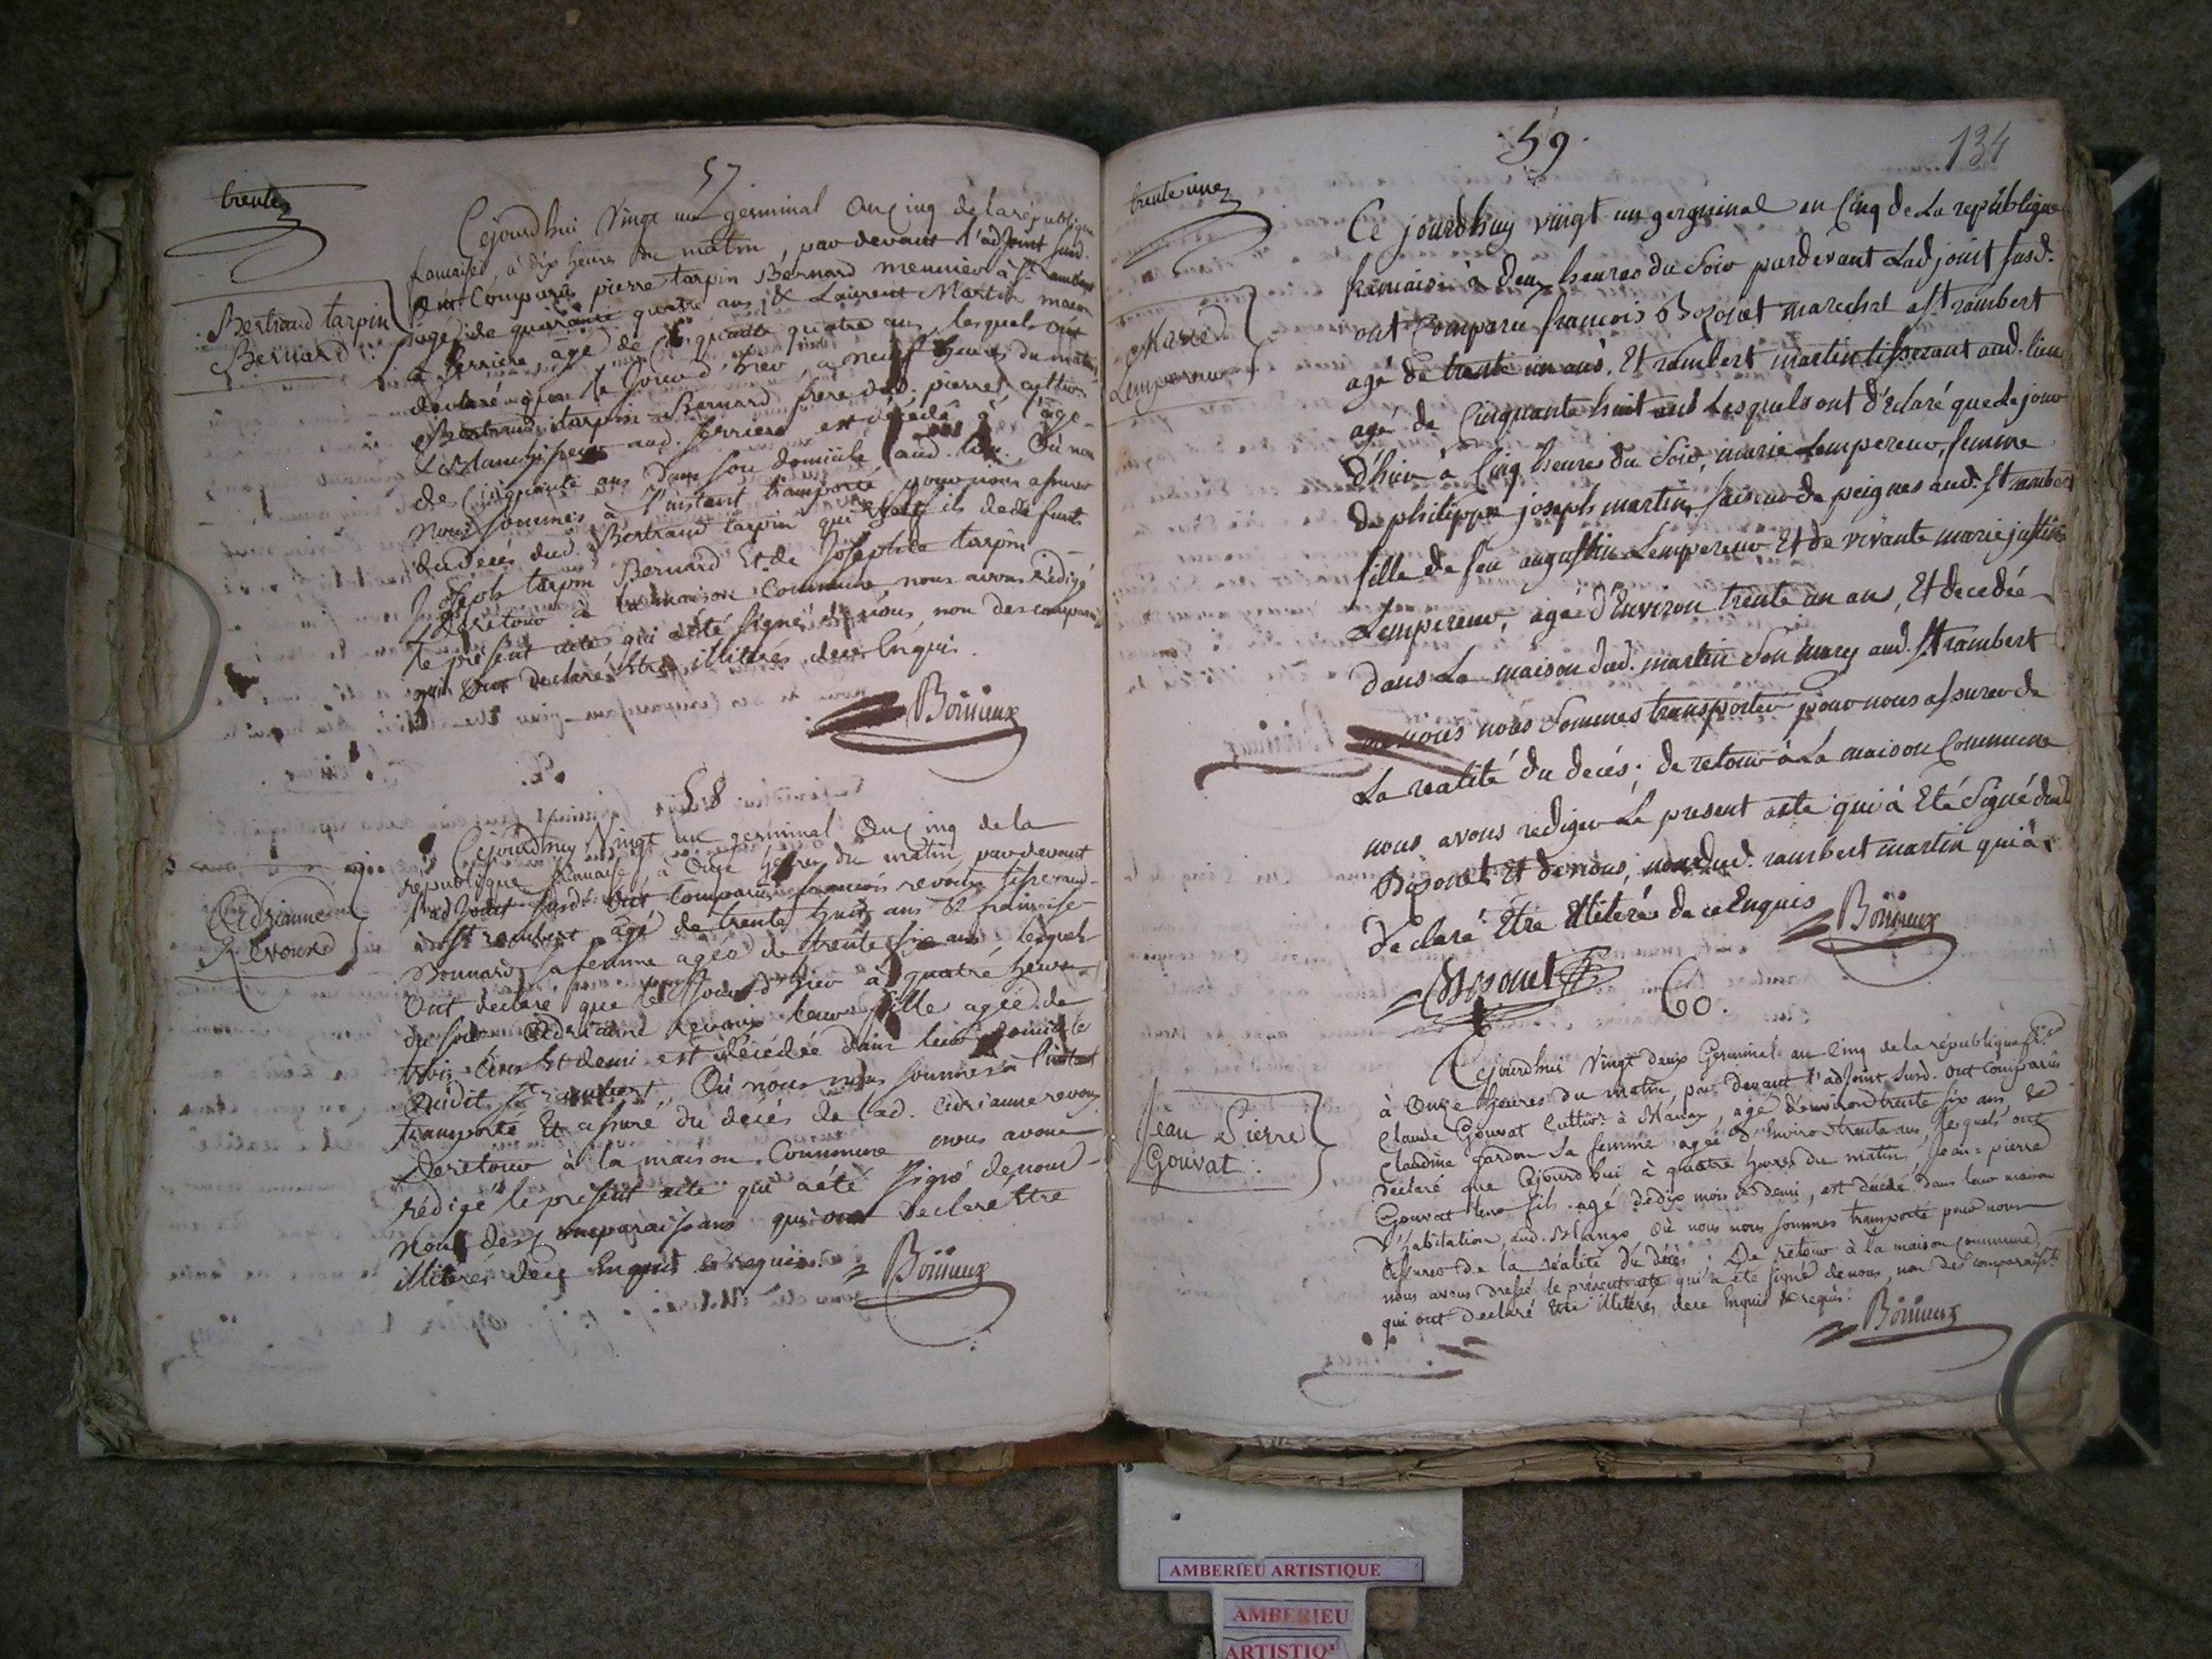 trente
57
Cejourdhui Vingt un germinal an Cinq de la république
francaise, à dix heures du matin, par devant l'adjoint susd.
ont Comparus pierre tarpin Bernard meunier à St rambert
agé de quarante quatre ans, & Laurent Martin macon
à Serriere, agé de Cinquante quatre ans, lesquels ont
declaré que le Jour d'hier, a neuf heures du matin
Bertrand tarpin Bernard frere dud. pierre, cultivr.
& Blanchisseur aud. Serriere est décédé à l'age
de Cinquante ans dans son domicile aud. lieu. Où nous
nous sommes à l'instant transporté pour nous assurer
du décés dud. Bertrand tarpin qui est fils de défunts
Joseph tarpin Bernard Et de Josephte tarpin
De retour à la maison Commune nous avons rédigé
le présent acte qui a été signé de nous, non des comparus
qui ont declaré Etre illiterés dece Enquis.
Bertrand tarpin
Bernard
Bonnieux
58
Cejourdhuy Vingt un germinal an Cinq de la
république francaise, à Onze heures du matin, par devant
l'adjoint susd. ont comparus francois revoux tisserand
à St rambert, agé de trente huit ans & francoise
Bonnard sa femme agée de trente six ans, lesquels
Ont declaré que le Jour d'hier à quatre heures
du soir Adrianne revoux leur fille agée de
trois ans Et demi est décédée dans leur domicile
audit St rambert, Où nous nous sommes à l'instant
transporté Et assuré du décés de lad. Adrianne revoux
De retour à la maison Commune nous avons
rédigé le présent acte qui a été signé de nous
Non des Comparaissans qui ont declaré Etre
illiterés dece Enquis & requis.
Adrianne
Revoux
Bonnieux
59.
134
trente une
Ce jourdhuy vingt un germinal an Cinq de La republique
francaise à deux heures du Soir pardevant Ladjoint susd.
ont Comparu francois Bozonet marechal a St rambert
agé de trente un ans, Et rambert martin tisserant aud. lieu
agé de Cinquante huit ans Lesquels ont déclaré que Le jour
d'hier à Cinq heures du Soir, marie Lempereur, femme
de philippe joseph martin, faiseur de peignes aud. St rambert
fille de feu augustin Lempereur Et de vivante marie justine
Lempereur, agée d'Environ trente un ans, Et decedée
dans La maison dud. martin Son mary aud. St rambert
nous nous Sommes transporter pour nous assurer de
La realité du decés; de retour à La maison Commune
nous avons rediger Le present acte qui à Eté Signé dud.
Bozonet Et de nous, non dud. rambert martin qui à
declaré Etre Illiterés de ce Enquis
Marie
Lempereur
Bonnieux
Bozonet
60.
Cejourdhui Vingt deux Germinal an Cinq de la république
à Onze heures du matin, par devant l'adjoint susd. ont comparus
Claude Gouvat Cultivr. à Blanaz, agé d'environ trente six ans &
Claudine Gardon sa femme agée d'Environ trente ans, lesquels ont
declaré que Cejourd'hui à quatre heures du matin Jean-pierre
Gouvat leur fils agé de dix mois & demi, est décédé dans leur maison
d'habitation aud. Blanaz Où nous nous sommes transporté pour nous
assurer de la réalité du décès. De retour à la maison Commune,
nous avons dressé le présent acte qui a été signé de nous, non des comparaisst.
qui ont declaré Etre illiterés, dece Enquis & requis.
Jean Pierre
Gouvat.
Bonnieux
AMBERIEU ARTISTIQUE
AMBERIEU
ARTISTIQ